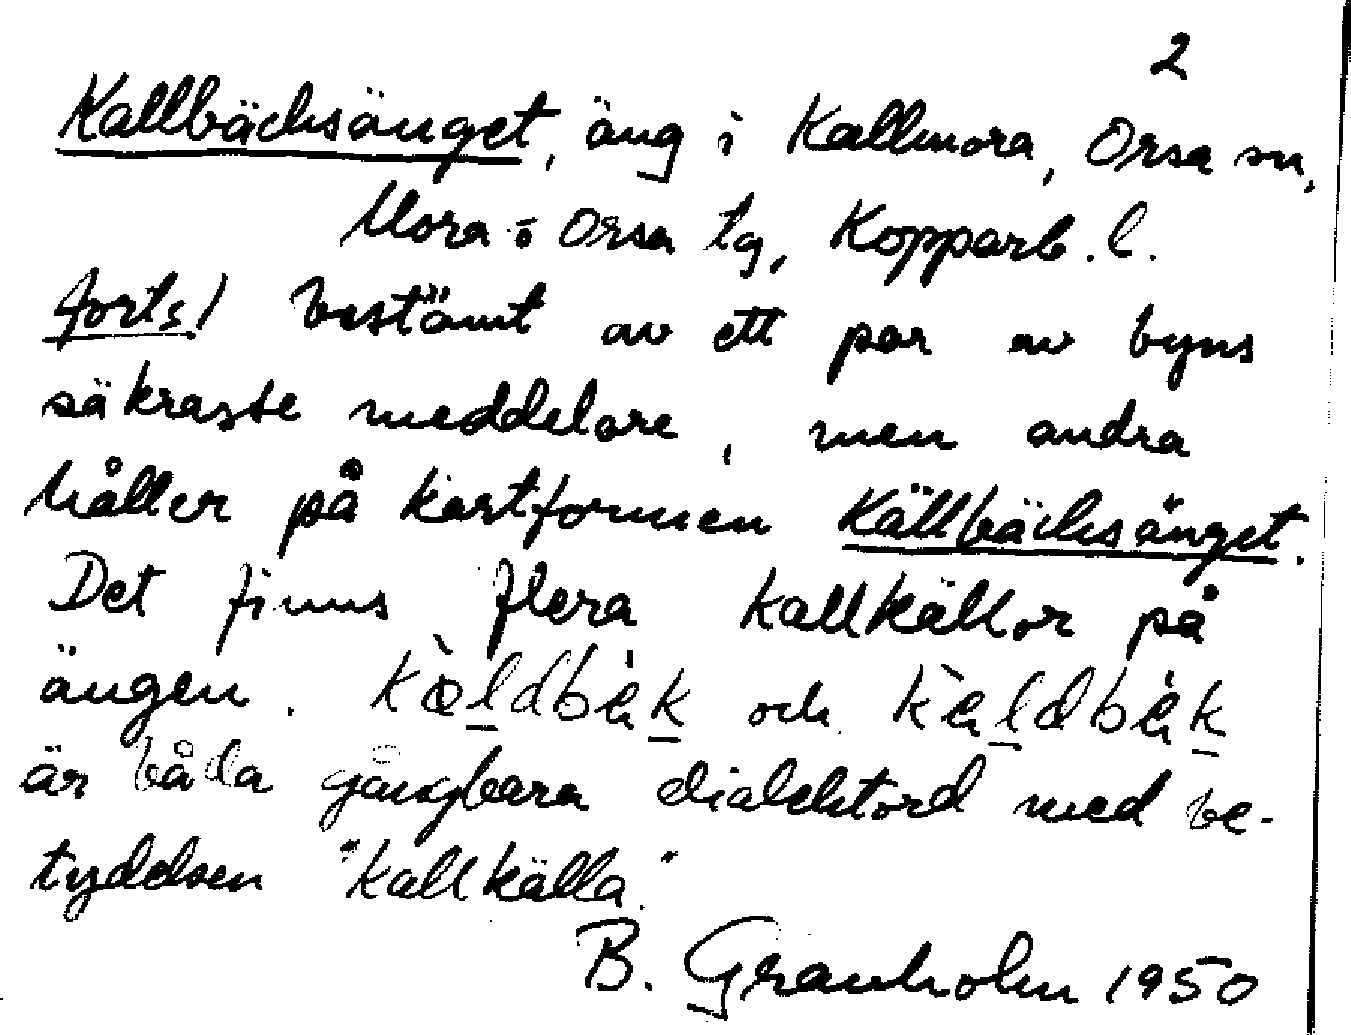 2
Kallbäcksänget, äng i Kallmora, Orsa sn,
Mora o Orsa tg, Kopparb. l.
forts/ bestämt av ett par av byns
säkraste meddelare, men andra
håller på kartformen Källbäcksänget.
Det finns flera kallkällor på
ängen. kàldbàk och kàldbàk
är båda gångbara dialektord med be-
tydelsen "kallkälla."
B. Granholm 1950